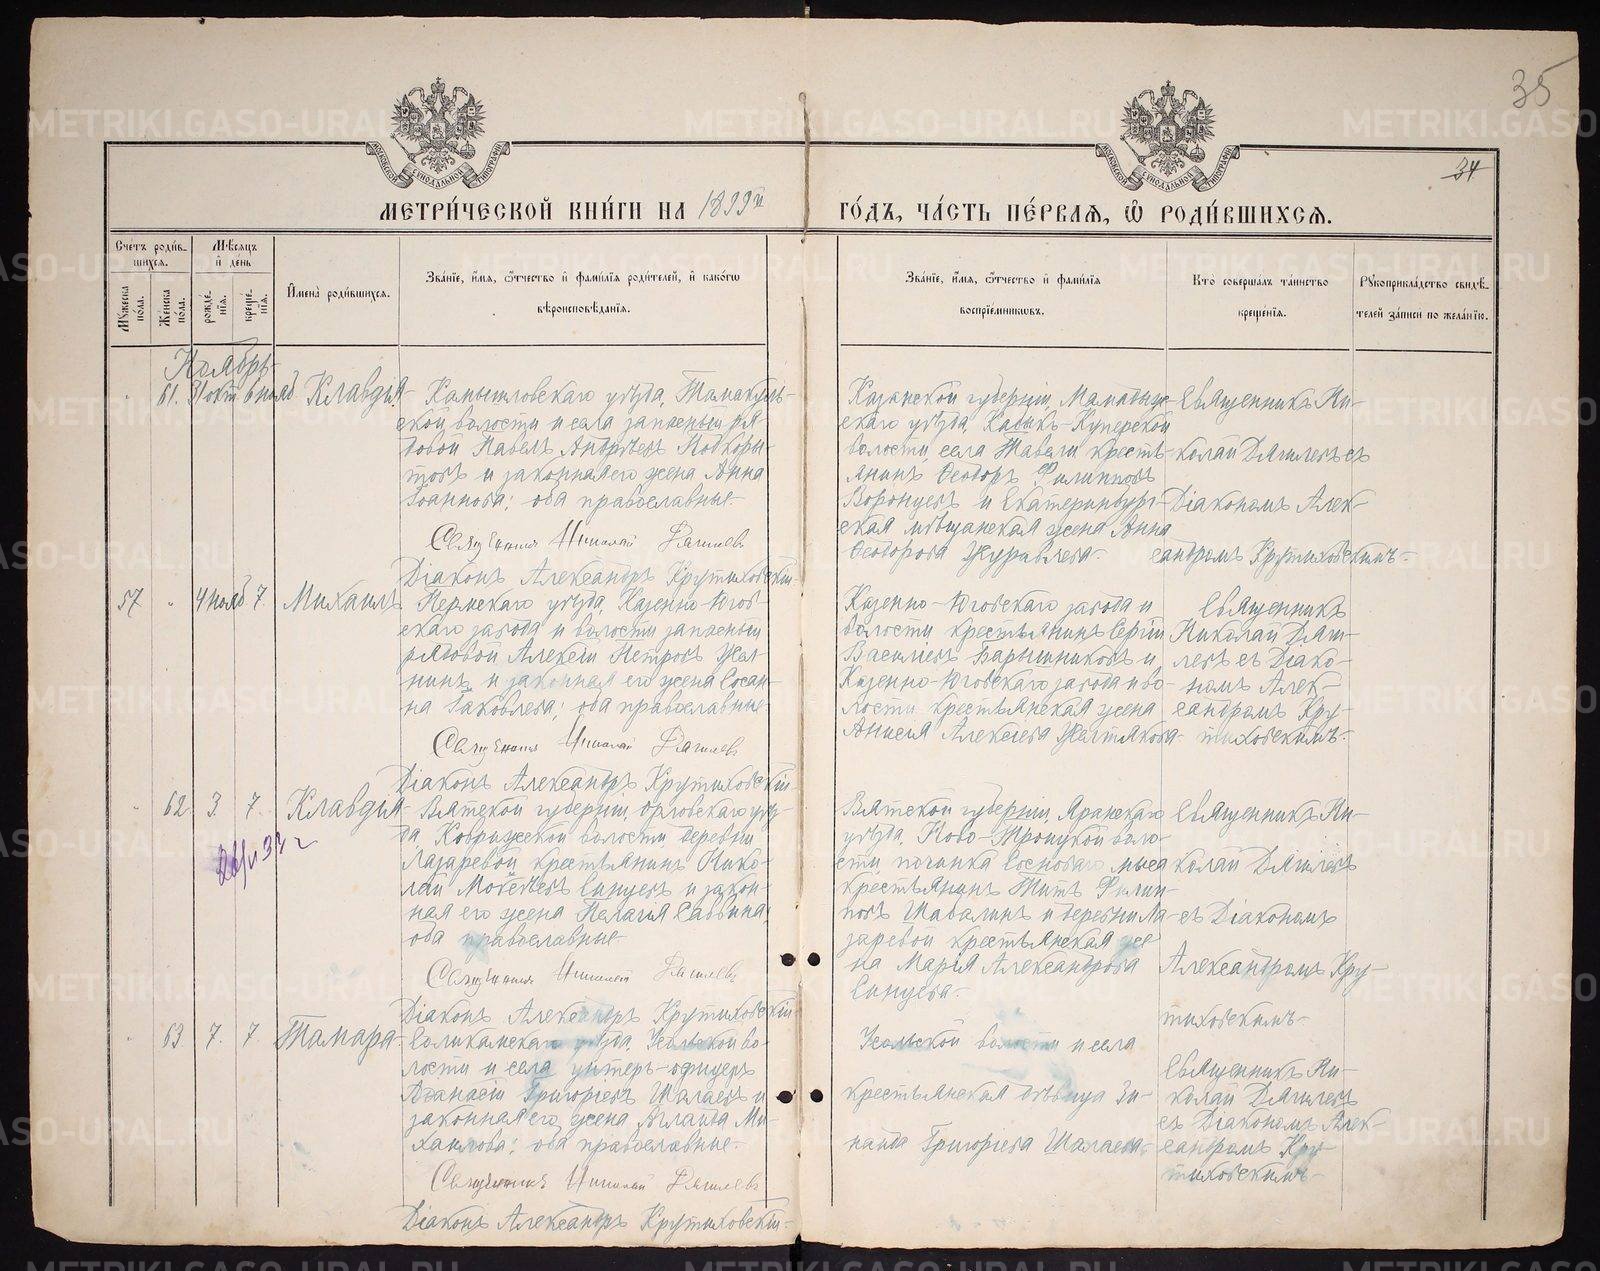 35
34
МЕТРИ́ЧЕСКОЙ КНИ́ГИ НА 1899й ГО́ДЪ, ЧА́СТЬ ПЕ́РВАЯ, Ѽ РОДИ́ВШИХСЯ.
Сче́тъ роди́в-
шихся.
Мѣ́сяцъ
и҆ де́нь
Мꙋ́жеска по́ла.
Же́нска по́ла.
рожде́-
нїя.
креще́-
нїя.
И҆мена̀ роди́вшихся.
Зва́нїе, и҆́мя, ѻ҆́тчество и҆ фами́лїя роди́телей, и҆ како́гѡ
вѣроисповѣ́данїя.
Зва́нїе, и҆́мя, ѻ҆́тчество и҆ фами́лїя
воспрїе́мниковъ.
Кто̀ соверша́лъ та́инство
креще́нїя.
Рꙋкоприкла́дство свидѣ́-
телей за́писи по жела́нїю.
Ноябрь
61. 31 окт 6 нояб Клавдія
Камышловскаго уѣзда, Тамакуль-
ской волости и села запасный ря-
довой Павелъ Андреевъ Подкоры-
товъ и законная его жена Анна
Іоаннова; оба православные.
Священникъ Николай Дягилевъ
Діаконъ Александръ Крутиховскій
Казанской губерніи, Мамадыш-
скаго уѣзда, Кабык-Куперской
волости, села Тавели крестья-
нинъ Ѳеодоръ Филипповъ
Воронцовъ и Екатеринбург-
ская мѣщанская жена Анна
Ѳеодорова Журавлева.
Священникъ Ни-
колай Дягилевъ съ
Діакономъ Алек-
сандромъ Крутиховскимъ.
57 " 4 нояб 7 Михаилъ
Пермскаго уѣзда, Казенно-Югов-
скаго завода и волости запасный
рядовой Алексій Петровъ Жел-
нинъ и законная его жена Сосан-
на Іаковлева; оба православные
Священникъ Николай Дягилевъ
Діаконъ Александръ Крутиховскій
Казенно-Юговскаго завода и
волости крестьянинъ Сергій
Василіевъ Барышниковъ и
Казенно-Юговскаго завода и во-
лости крестьянская жена
Анисія Алексіева Желтякова
Священникъ
Николай Дяги-
левъ съ Діако-
номъ Алек-
сандромъ Кру-
тиховскимъ.
62 3. 7. Клавдія
Вятской губерніи, Орловскаго уѣз-
да, Кобрыжской волости деревни
Лазаревой крестьянинъ Нико-
лай Моѵсеевъ Синцевъ и закон-
ная его жена Пелагія Саввина;
оба православные
Священникъ Николай Дягилевъ
Діаконъ Александръ Крутиховскій
Вятской губерніи, Яранскаго
уѣзда, Ново-Троицкой воло-
сти починка Сосноваго мыса
крестьянинъ Титъ Филип-
повъ Шабалинъ и деревни Ла-
заревой крестьянская же-
на Марія Александрова
Синцева.
Священникъ Ни-
колай Дягилевъ
съ Діакономъ
Александромъ Кру-
тиховскимъ
63. 7. 7. Тамара
Соликамскаго уѣзда, Усольской во-
лости и села унтеръ-офицеръ
Аѳанасій Григоріевъ Шалаевъ и
законная его жена Аглаида Ми-
хаилова; оба православные.
Священникъ Николай Дягилевъ
Діаконъ Александръ Крутиховскій
Усольской волости и села
крестьянская дѣвица Зи-
наида Григоріева Шалаева.
Священникъ Ни-
колай Дягилевъ
съ Діакономъ Алек-
сандромъ Кру-
тиховскимъ